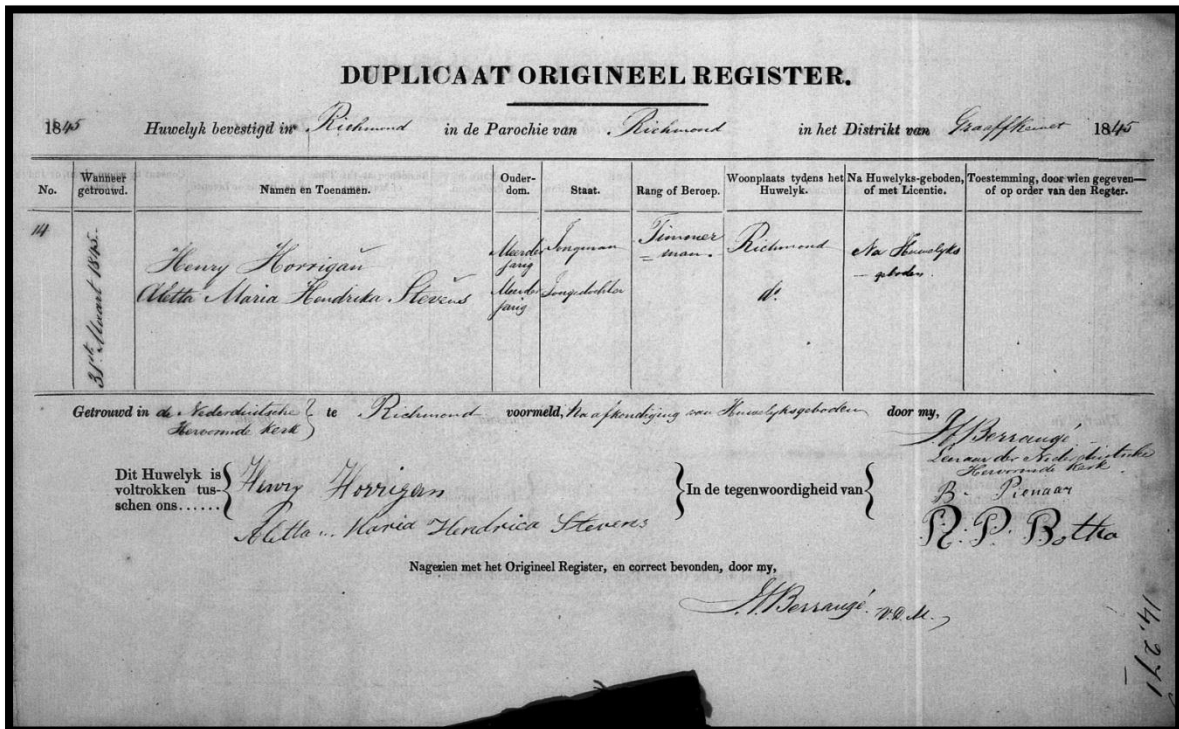 DUPLICAAT ORIGINEEL REGISTER.
1845 Huwelyk bevestigd in Richmond in de Parochie van Richmond in het Distrikt van Graaffreinet 1845
No. Wanneer getrouwd. Namen en Toenamen. Ouderdom. Staat. Rang of Beroep. Woonplaats tydens het Huwelyk. Na Huwelyks-geboden, of met Licentie. Toestemming, door wien gegeven—of op order van den Regter.
14 31ste Maart 1845. Henry Horrigan Meerder jarig Jongman Timmer=man. Richmond Na Huwelyks—geboden.
Aletta Maria Hendrika Stevens Meerder jarig Jongedochter do.
Getrouwd in de Nederduitsche Hervormde Kerk te Richmond voormeld, Na afkondiging van Huwelyksgeboden door my,
Berrangé
Leeraar der Nederduitsche
Hervormde Kerk.
Dit Huwelyk is voltrokken tusschen ons...... Henry Horrigan
Aletta Maria Hendrica Stevens
In de tegenwoordigheid van
B. Pienaar
R. P. Botha
Nagezien met het Origineel Register, en correct bevonden, door my,
Berrangé. V.D.M.
14,271